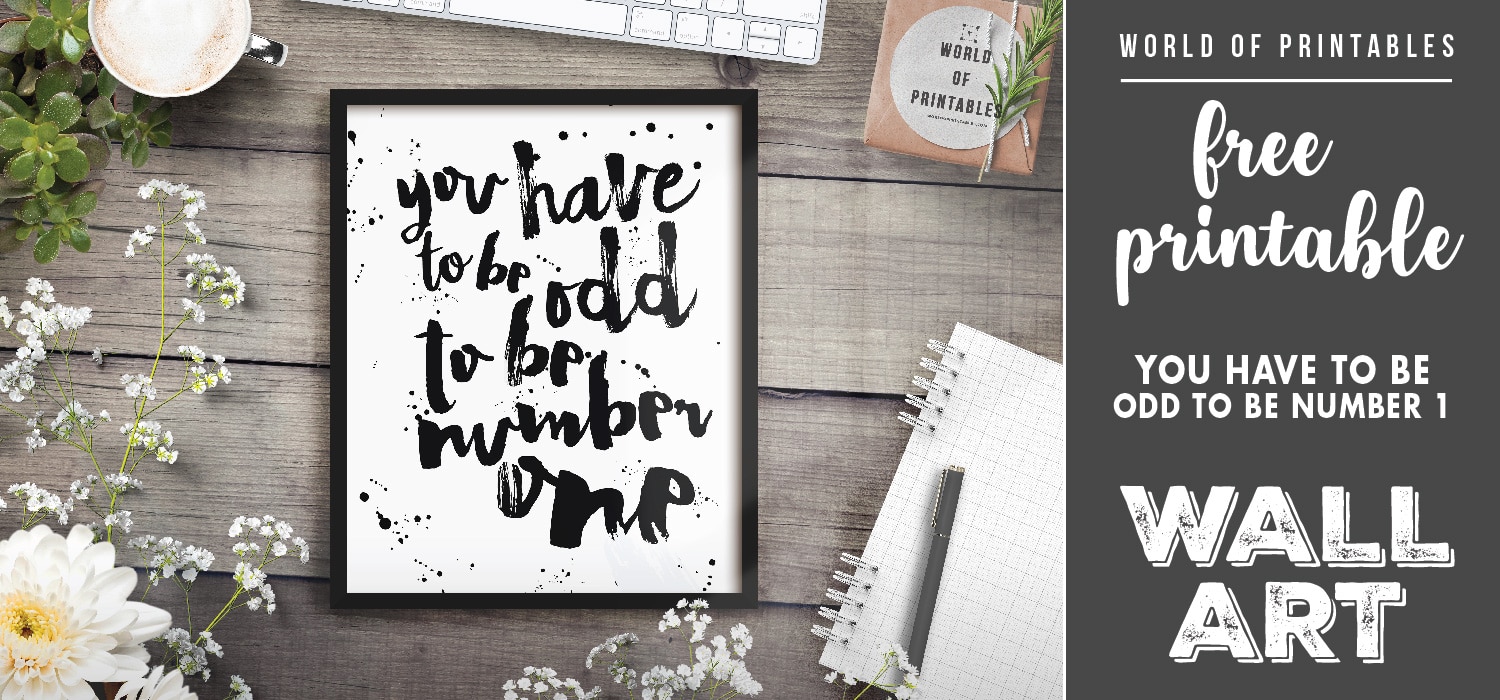 you have
to be odd
to be
number
one
WORLD
OF
PRINTABLES
WORLD OF PRINTABLES
free
printable
YOU HAVE TO BE
ODD TO BE NUMBER 1
WALL
ART